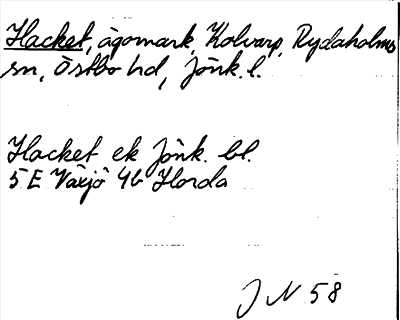 Hacket, ägomark, Kolvarp, Rydaholms
sn, Östbo hd, Jönk. l.
Hacket ek Jönk. bl.
5 E Växjö 4b Horda
J N 58